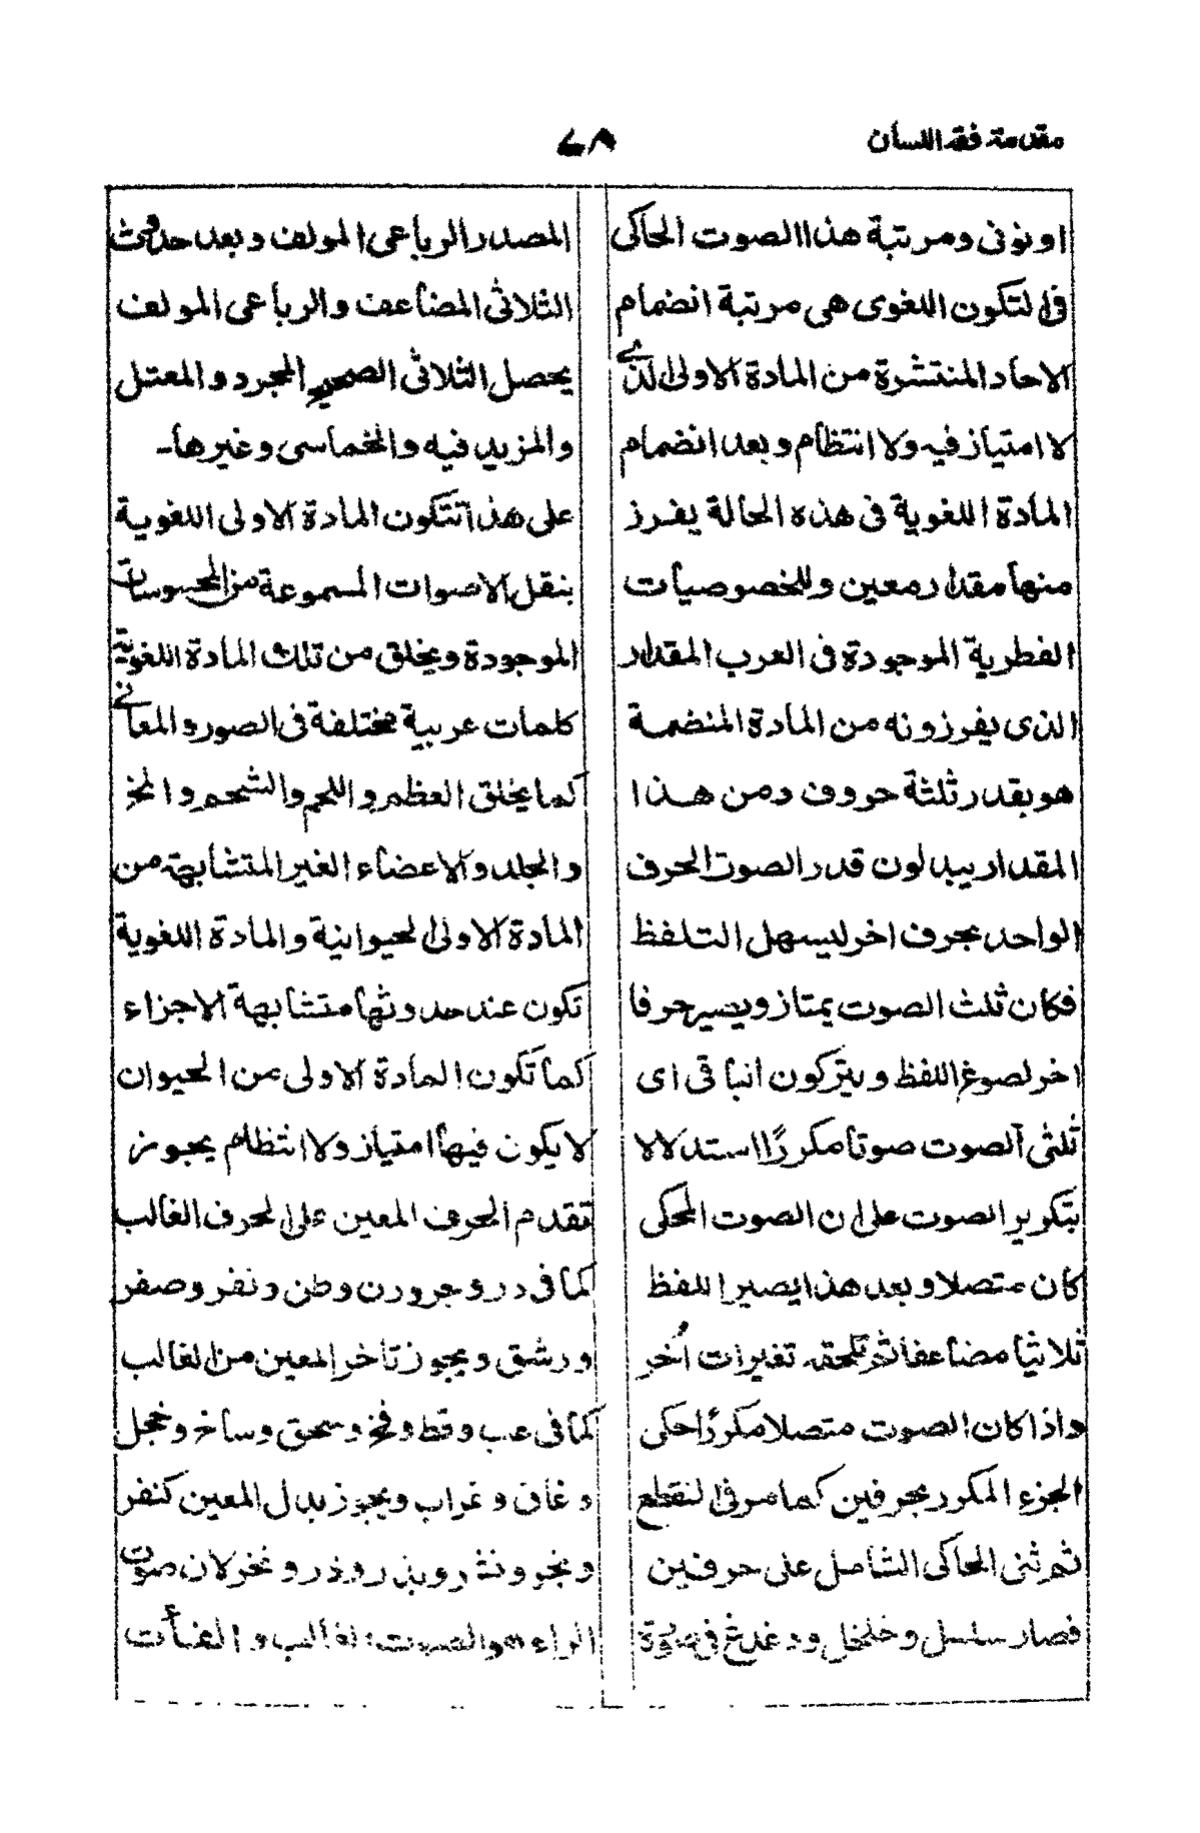 مقدمة فقه اللسان
٧٨
او نونى ومرتبة هذا الصوت الحاكى
فى التكون اللغوى هى مرتبة انضمام
الاحاد المنتشرة من المادة الاولى الذى
لا امتياز فيه ولا انتظام وبعد انضمام
المادة اللغوية فى هذه الحالة يفرز
منها مقدار معين وللخصوصيات
الفطرية الموجودة فى العرب المقدار
الذى يفرزونه من المادة المنضمة
هو بقدر ثلثة حروف ومن هذا
المقدار يبدلون قدر الصوت الحرف
الواحد بحرف اخر ليسهل التلفظ
فكان ثلث الصوت يمتاز ويصير حرفا
اخر لصوغ اللفظ ويتركون الباقى اى
ثلثى الصوت صوتا مكررًا استدلالا
بتكرير الصوت على ان الصوت المحكى
كان متصلا وبعد هذا يصير اللفظ
ثلاثيا مضاعفا ثم تلحقه تغيرات أخر
واذا كان الصوت متصلا مكررًا حكى
الجزء المكرر بحرفين كما مر فى النقطع
ثم ثنى الحاكى الشامل على حرفين
فصار سلسل وخلخل ودغدغ فى صورة
المصدر الرباعى المولف وبعد حدوث
الثلاثى المضاعف والرباعى المولف
يحصل الثلاثى الصحيح المجرد والمعتل
والمزيد فيه والخماسى وغيرها-
على هذا تتكون المادة الاولى اللغوية
بنقل الاصوات المسموعة من المحسوسات
الموجودة ويخلق من تلك المادة اللغوية
كلمات عربية مختلفة فى الصور والمعانى
كما يخلق العظم واللحم والشحم والمخ
والجلد والاعضاء الغير المتشابهة من
المادة الاولى الحيوانية والمادة اللغوية
تكون عند حدوثها متشابهة الاجزاء
كما تكون المادة الاولى من الحيوان
لا يكون فيها امتياز ولا انتظام يجوز
تقدم الحرف المعين على الحرف الغالب
كما فى درو جرورن وطن ونفر وصفر
ورشق ويجوز تاخر المعين من الغالب
كما فى عب وقط وفخ وسحق وساخ وخجل
وغاق وغراب ويجوز بدل المعين كنفر
ونجر ونثر وبذر وذر ونخر لان صوت
الراء هو الصوت الغالب والفاءت